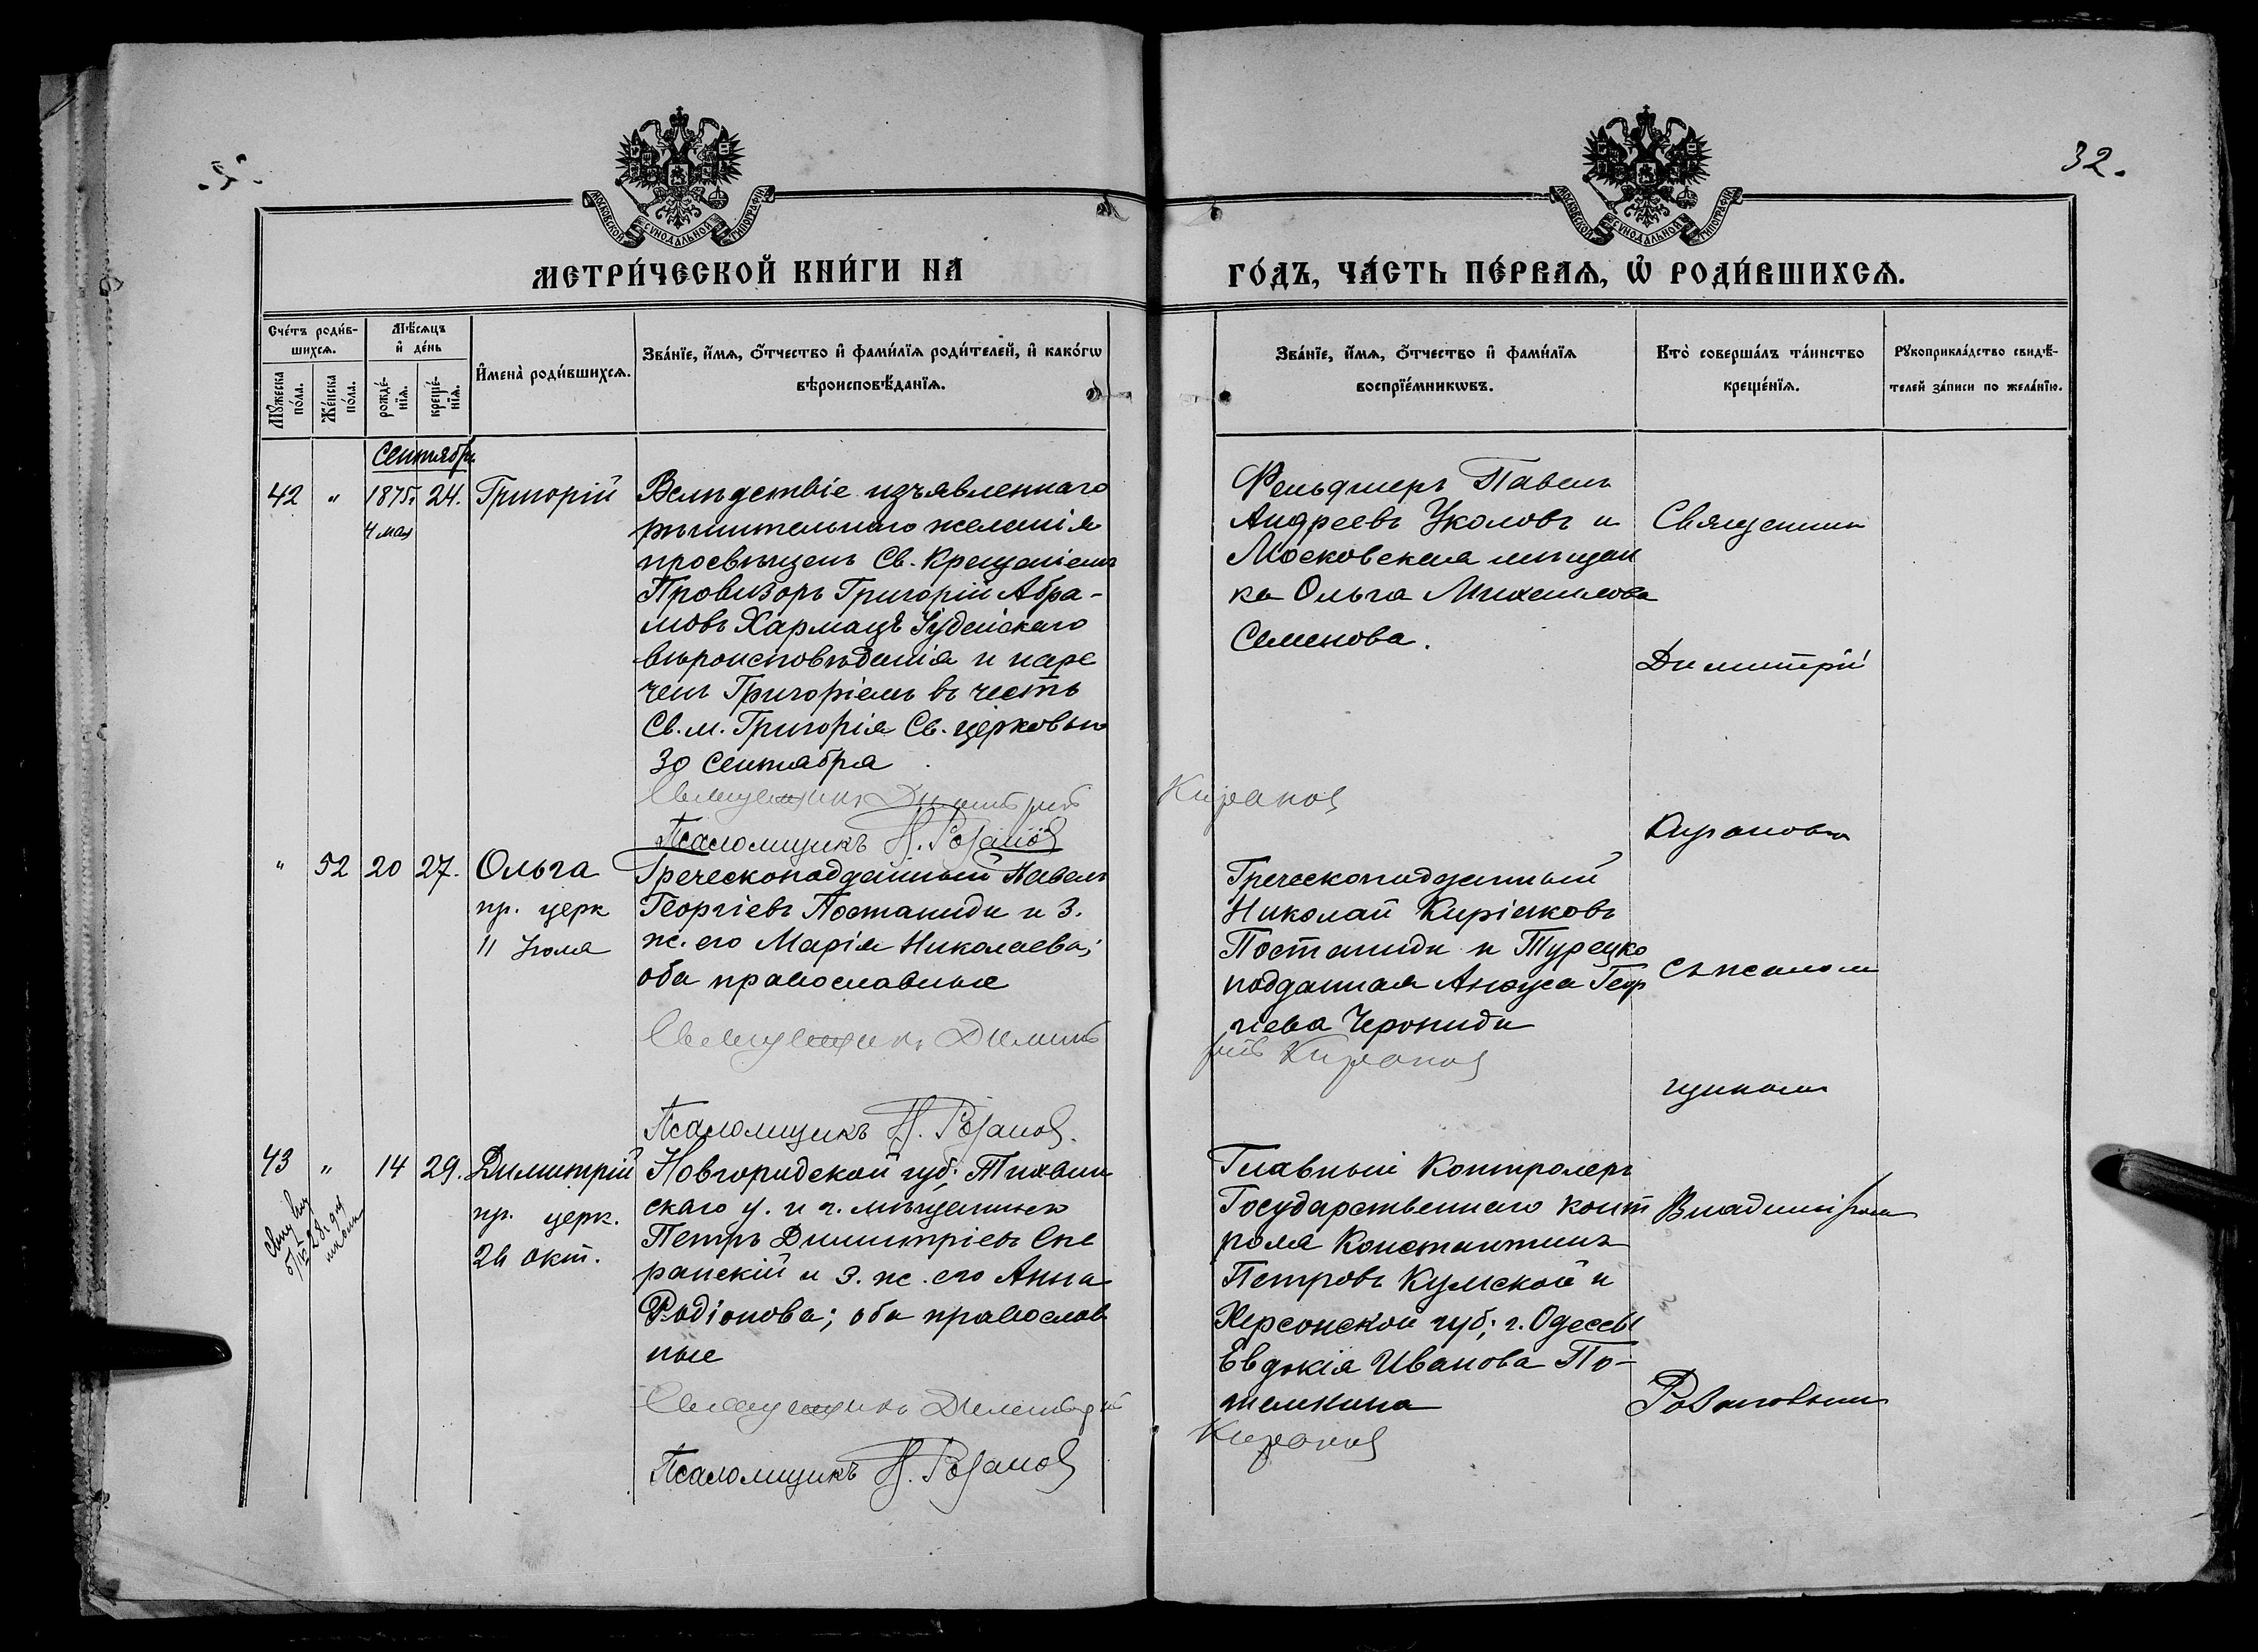 32.
МОСКОВСКОЙ СѴНОДАЛЬНОЙ ТИПОГРАФІИ
МОСКОВСКОЙ СѴНОДАЛЬНОЙ ТИПОГРАФІИ
МЕТРИ́ЧЕСКОЙ КНИ́ГИ НА
ГО́ДЪ, ЧА́СТЬ ПЕ́РВАѦ, Ѡ҆ РОДИ́ВШИХСѦ.
Сче́тъ роди́в-
шихсѧ.
Мꙋ́жеска по́ла.
Же́нска по́ла.
Мѣ́сѧцъ
и҆ де́нь
рожде́-
нїѧ.
креще́-
нїѧ.
И҆мена̀ роди́вшихсѧ.
Зва́нїе, и҆́мѧ, ѻ҆́тчество и҆ фами́лїѧ роди́телей, и҆ како́гѡ
вѣроисповѣ́данїѧ.
Зва́нїе, и҆́мѧ, ѻ҆́тчество и҆ фами́лїѧ
воспрїе́мникѡвъ.
Кто̀ соверша́лъ та́инство
креще́нїѧ.
Рꙋкоприкла́дство свидѣ́-
телей за́писи по жела́нїю.
Сентябрь
42 " 1875г. 24. Григорій
4 мая
Вслѣдствіе изъявленнаго
рѣшительнаго желанія
просвѣщенъ Св. Крещеніемъ
Провизоръ Григорій Абра-
мовъ Хармацъ Іудейскаго
вѣроисповѣданія и наре
ченъ Григоріемъ въ честь
Св. м. Григорія Св. церковью
30 Сентября
Священникъ Димитрій Кирановъ
Псаломщикъ Н. Розановъ
Фельдшеръ Павелъ
Андреевъ Уколовъ и
Московская мѣщан
ка Ольга Михаилова
Семенова.
Священник
Димитрій
Кирановъ
" 52 20 27. Ольга
пр. церк
11 Іюля
Греческоподданный Павелъ
Георгіевъ Постаниди и З.
ж. его Марія Николаева;
оба православные
Священникъ Димит
рій Кирановъ
Псаломщикъ Н. Розановъ.
Греческоподданный
Николай Киріаковъ
Постаниди и Турецко
подданная Анѳуса Геор
гіева Черониди
съ псалом
щикомъ
43 " 14 29. Димитрій
пр. церк.
26 окт.
Новгородской губ. Тихвин
скаго у. и г. мѣщанинъ
Петръ Димитріевъ Спе
ранскій и З. ж. его Анна
Родіонова; оба православ
ные
Священникъ Димитрій
Кирановъ
Псаломщикъ Н. Розановъ
Главный Контролеръ
Государственнаго конт
роля Константинъ
Петровъ Кумской и
Херсонской губ; г. Одессы
Евдокія Иванова По-
темкина
Розановымъ